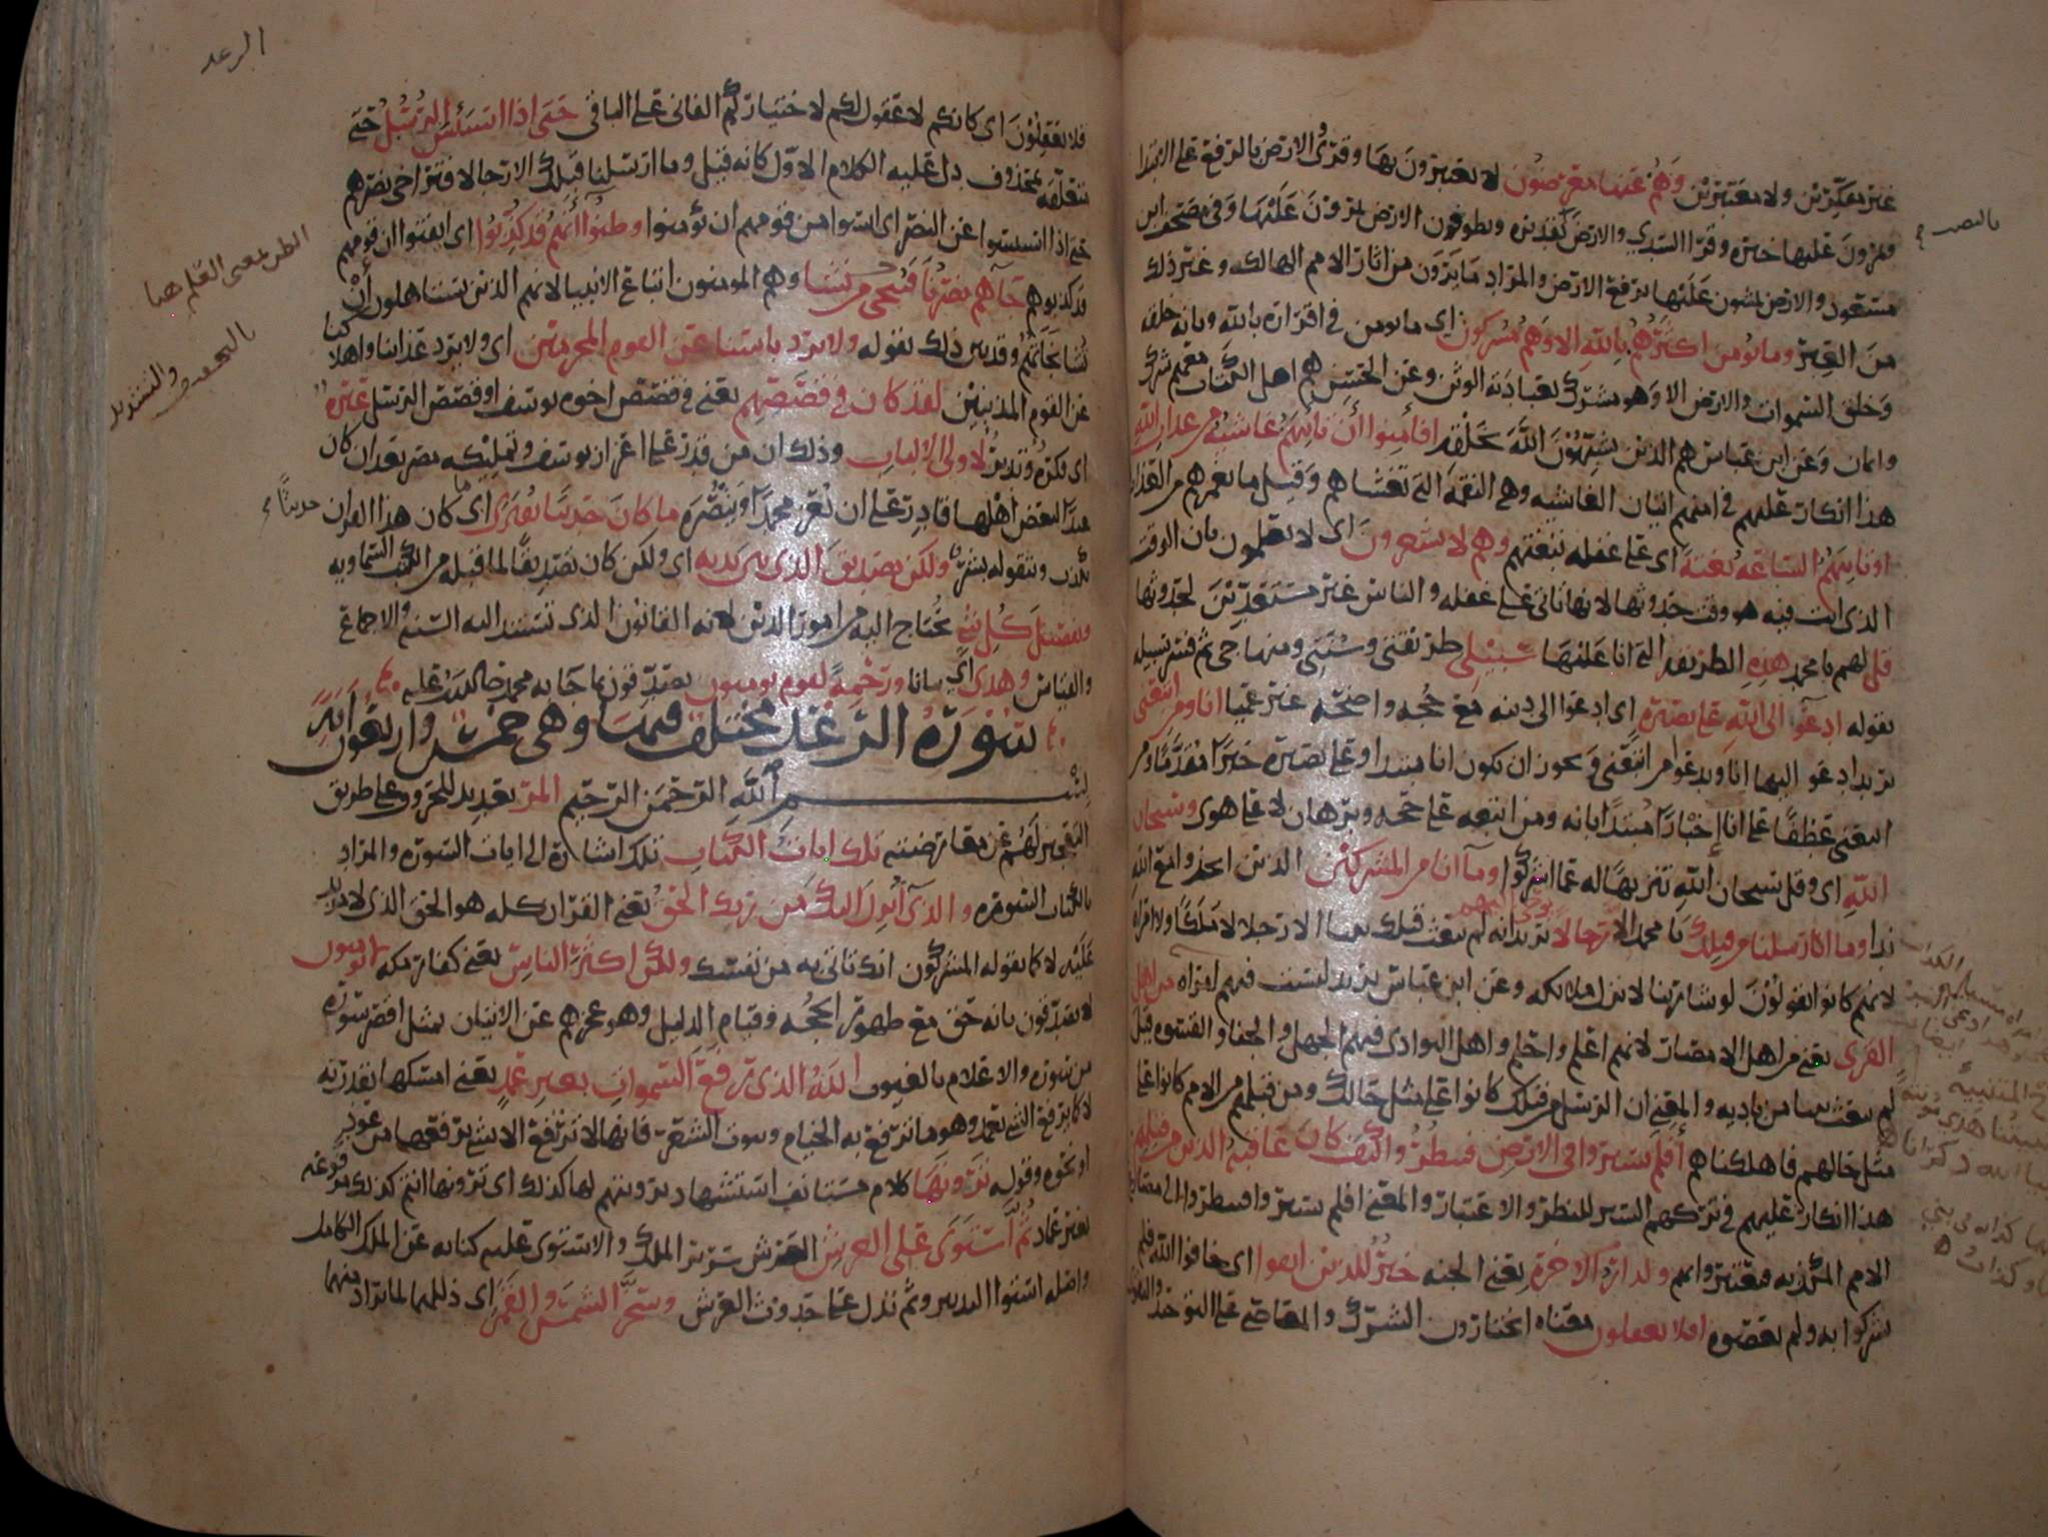 غير متفكرين ولا معتبرين وهم عنها معرضون لا يعتبرون بها وقرئ والارض بالرفع على الابتدا
ويمرون عليها خبره وقرا السدي والارض ويطوفون الارض يمرون عليها وفي مصحف ابن
مسعود والارض يمشون عليها برفع الارض والمراد ما يرون من اثار الامم الهالكه وغير ذلك
من العبر وما يومن اكثرهم بالله الا وهم مشركون اي ما يومن في اقراره بالله وبانه خلقه
وخلق السموات والارض الا وهو مشرك بعبادته الوثن وعن الحسن هم اهل الكتاب معهم شرك
وايمان وعن ابن عباس هم الذين يشبهون الله بخلقه افأمنوا أن تأتيهم غاشية من عذاب الله
هذا انكار عليهم في امنهم اتيان الغاشيه وهي النقمة التي تغشاهم وقيل ما يغمرهم من العذاب
او تاتيهم الساعة بغتة اي على غفله تبغتهم وهم لا يشعرون اي لا يعلمون بان الوقت
الذي انت فيه هو وقت حدوثها لانها تاتي على غفله والناس غير مستعدين لحدوثها
قل لهم يا محمد هذه الطريقه التي انا عليها سبيلي طريقتي وسنتي ومنهاجي ثم فسر سبيله
بقوله ادعو الى الله على بصيرة اي ادعوا الى دينه مع حجه واضحه غير عميا انا ومن اتبعني
يريد ادعو اليها انا ويدعو من اتبعني ويجوز ان يكون انا مبتدا وعلى بصيره خبرا مقدما ومن
اتبعني عطفا على انا إخبارا مبتدا بانه ومن اتبعه على حجه وبرهان لا على هوى وسبحان
الله اي وقل سبحان الله تنزيها له عما اشركوا وما انا من المشركين الذين اتخذوا مع الله
ندا وما ارسلنا من قبلك يا محمد الا رجالا نوحي اليهم يريد انه لم يبعث قبلك نبيا الا رجلا لا ملكا ولا امراة
لانهم كانوا يقولون لو شا ربنا لانزل ملايكه وعن ابن عباس يريد ليست فيهم امراه من اهل
القرى يعني من اهل الامصار لانهم اعلم واحلم واهل البوادي فيهم الجهل والجفا والقسوه قيل
لم يبعث نبيا من باديه والمعني ان الرسل من قبلك كانوا على مثل حالك ومن قبلهم من الامم كانوا على
مثل حالهم فاهلكناهم أفلم يسيروا في الارض فينظروا كيف كان عاقبة الذين من قبلهم
هذا انكار عليهم في تركهم السير للنظر والاعتبار والمعني افلم يسيروا فينظروا الى مصارع
الامم المكذبه فيعتبروا بهم ولدار الاخرة يعني الجنه خير للذين اتقوا اي خافوا الله فلم
يشركوا به ولم يعصوه افلا يعقلون معناه اتختارون الشرك والمعاصي على التوحيد
بالنصب
الرعد
فلا يعقلون اي كانكم لا عقول لكم لاختياركم الفاني على الباقي حتى اذا استيئس الرسل حتى
متعلقه بمحذوف دل عليه الكلام الاول كانه قيل وما ارسلنا قبلك الا رجالا فتراخى نصرهم
حتى اذا استيئسوا عن النصر اي ايسوا من قومهم ان يؤمنوا وظنوا أنهم قد كذبوا اي ايقنوا ان قومهم
قد كذبوهم جآهم نصرنا فننجي من نشا وهم المومنون اتباع الانبيا لانهم الذين يستاهلون أن
نشا نجاتهم وقد بين ذلك بقوله ولا يرد باسنا عن القوم المجرمين اي ولا يرد عذابنا واهلاكنا
عن القوم المذنبين لقد كان في قصصهم يعني في قصص اخوه يوسف او قصص الرسل عبرة
اي فكره وتدبر لاولى الالباب وذلك ان من قدر على اعزاز يوسف وتمليكه مصر بعد ان كان
عبدا لبعض اهلها قادر على ان يعز محمدا وينصره ما كان حديثا يفترى اي ما كان هذا القران حديثا
يكذب ويتقوله بشر ولكن تصديق الذي بين يديه اي ولكن كان تصديقا لما قبله من الكتب السماويه
وتفصيل كل شي يحتاج اليه من امور الدين لانه القانون الذي تستند اليه السنه والاجماع
والقياس وهدى اي بيانا ورحمة لقوم يومنون يصدقون بما جا به محمد صلى الله عليه
سورة الرعد مختلف فيها وهي خمس واربعون آية
بسم الله الرحمن الرحيم المر تعديد للحروف على طريق
تلك ايات الكتاب تلك اشارة الى ايات السوره والمراد
بالكتاب السوره والذي أنزل اليك من ربك الحق يعني القران كله هو الحق الذي لا مزيد
عليه لا كما يقوله المشركون انك تاتي به من نفسك ولكن اكثر الناس يعني كفار مكه لا يومنون
لا يصدقون بانه حق مع ظهور الحجه وقيام الدليل وهو عجزهم عن الاتيان بمثل اقصر سورة
من سوره والاعلام بالغيوب الله الذي رفع السموات بغير عمد يعني امسكها بقدرته
لا كما يرفع الشي بعمد وهو ما ترفع به الخيام وبيوت الشعر فانها لا ترتفع الا بشي يرفعها من عود
او نحوه وقوله ترونها كلام مستانف استشهاد برويتهم لها كذلك اي ترونها انتم كذلك مرفوعه
بغير عماد ثم استوى على العرش العرش سرير الملك والاستوى عليه كنايه عن الملك الكامل
واصله استوا التدبير وثم تدل على حدوث العرش وسخر الشمس والقمر اي ذللهما لما يراد منهما
الظن بمعنى العلم هنا
بالتخفيف والتشديد
حديثا